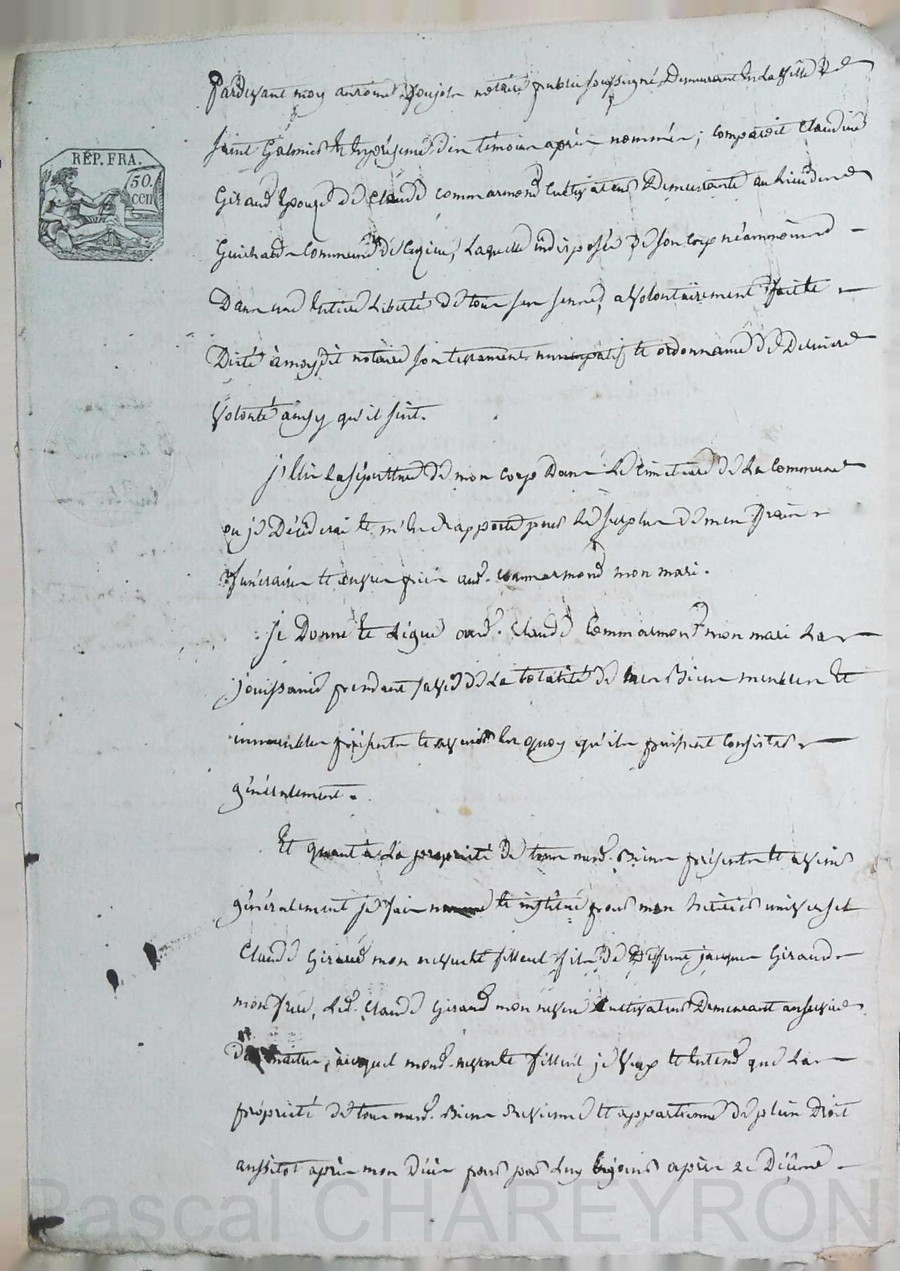 RÉP. FRA.
50.
cen
Pardevant moy antoine poujole notaire public soussigné Demeurant En La Ville De
Saint Galmier Et En présence des témoins après nommés; comparoit Claudine
Giraud Epouze de Claude commarmond Cultivateur Demeurante au Lieu de
Guichard Commune de Laquelle indisposée De son Corps néammoins
Dans une Entière Liberté De tous ses sens, a Volontairement faite
Dicté à moy dit notaire son testament nuncupatif Et ordonnance De Derniere
Volonté ainsy qu'il suit.
j'Elis La sépulture De mon corps Dans Le Cimetiere De La Commune
ou je Décéderai Et m'En rapporte pour Le surplus De mes frais
funéraires Et œuvres pies aud. commarmond mon mari.
Je Donne Et Légue aud. Claude Commarmond mon mari La
jouissance pendant sa vie De La totalité De mes Biens meubles Et
immeubles présents Et avenir En quoy qu'ils puissent Consister
généralement.
Et quant à La propriété De tous mesd. Biens présents Et avenir
généralement je fais nomme Et institue pour mon héritier universel
Claude Giraud mon neveu Et filleul fils De Deffunt jacques Giraud
mon frere, Led. Claude Giraud mon neveu Cultivateur Demeurant au service
auquel mond. neveu Et filleul je Veux Et Entend que La
propriété De tous mesd. Biens Et appartienne De plein Droit
aussitot après mon Décès pour par Luy En jouir après Le Décès
Pascal CHAREYRON